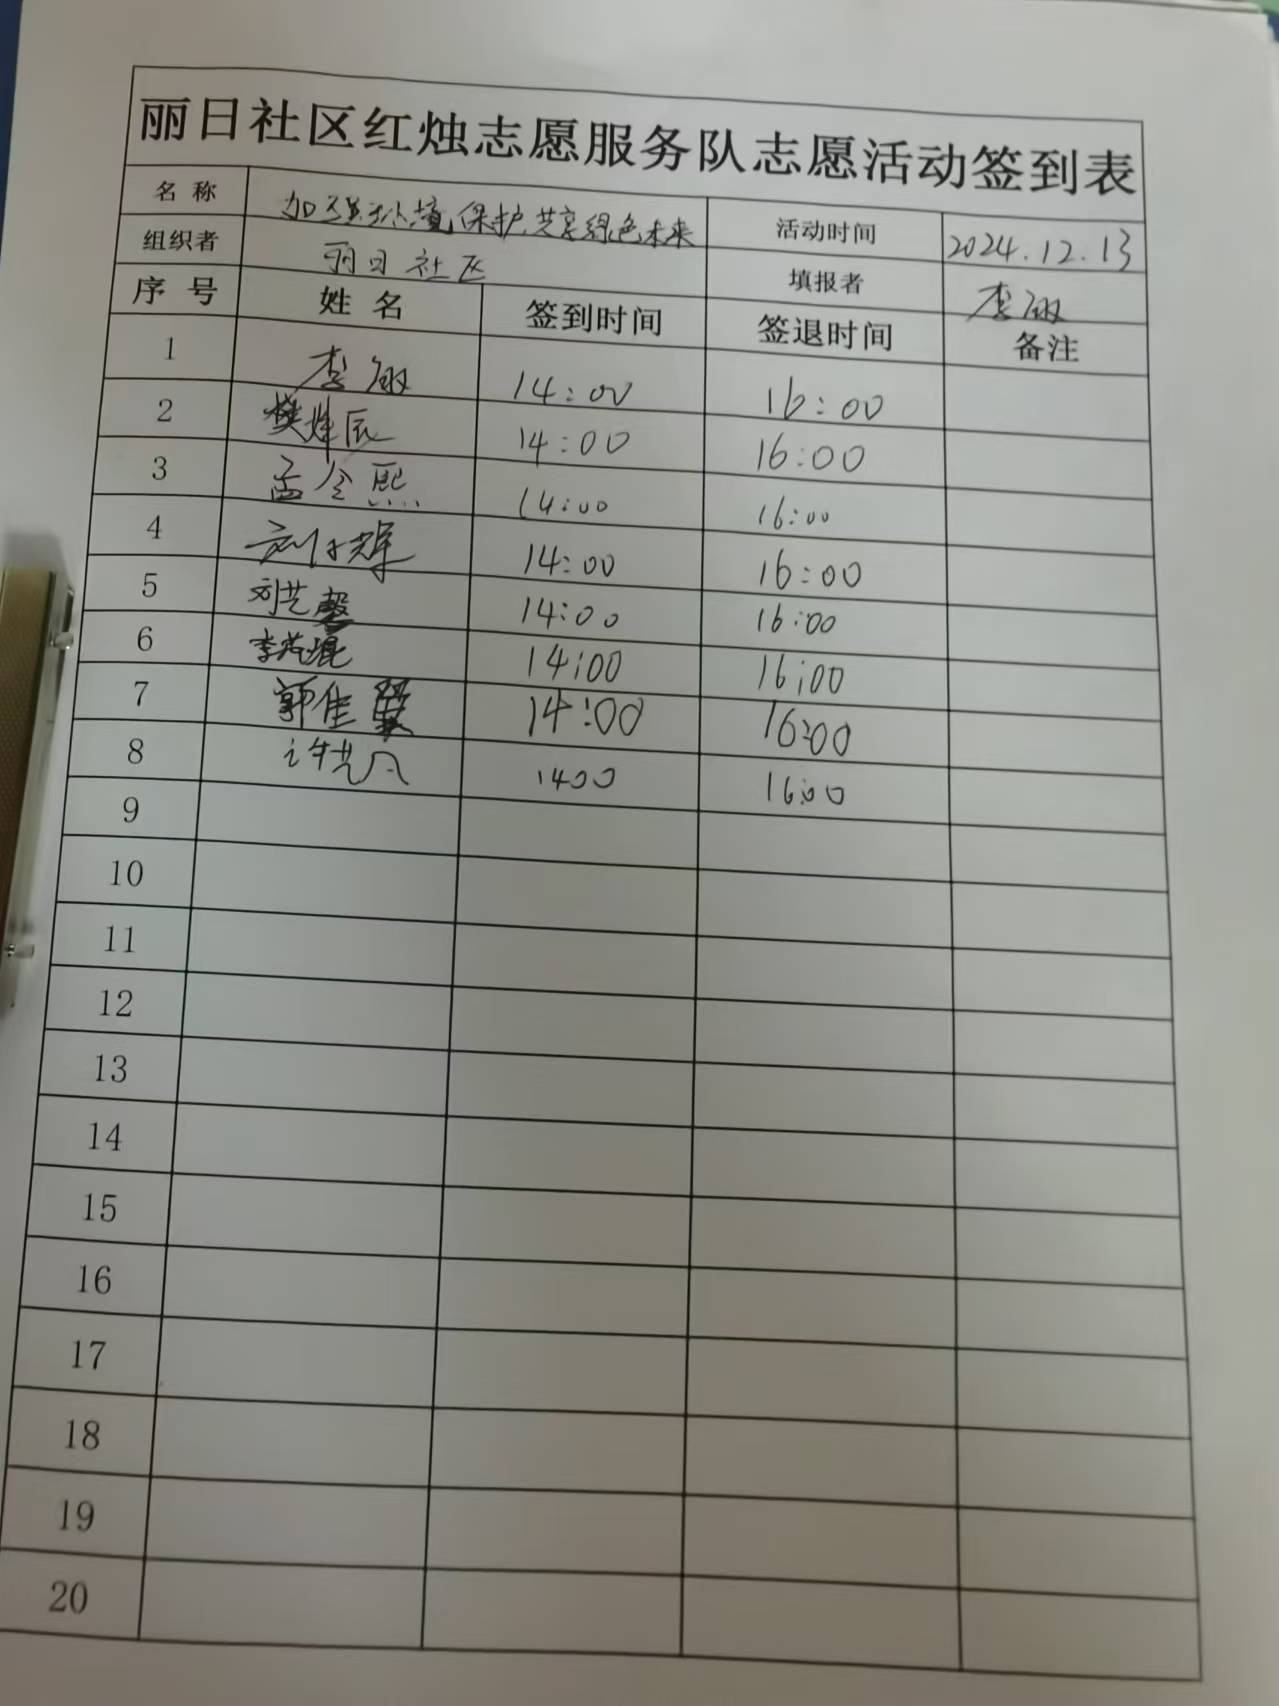 丽日社区红烛志愿服务队志愿活动签到表
名称 加强环境保护,共享绿色未来 活动时间 2024.12.13
组织者 丽日社区 填报者 李敏
序号 姓名 签到时间 签退时间 备注
1 李敏 14:00 16:00
2 樊烨辰 14:00 16:00
3 孟令熙 14:00 16:00
4 刘 辉 14:00 16:00
5 刘艺馨 14:00 16:00
6 李 琨 14:00 16:00
7 郭佳 14:00 16:00
8 许 1400 16:00
9
10
11
12
13
14
15
16
17
18
19
20